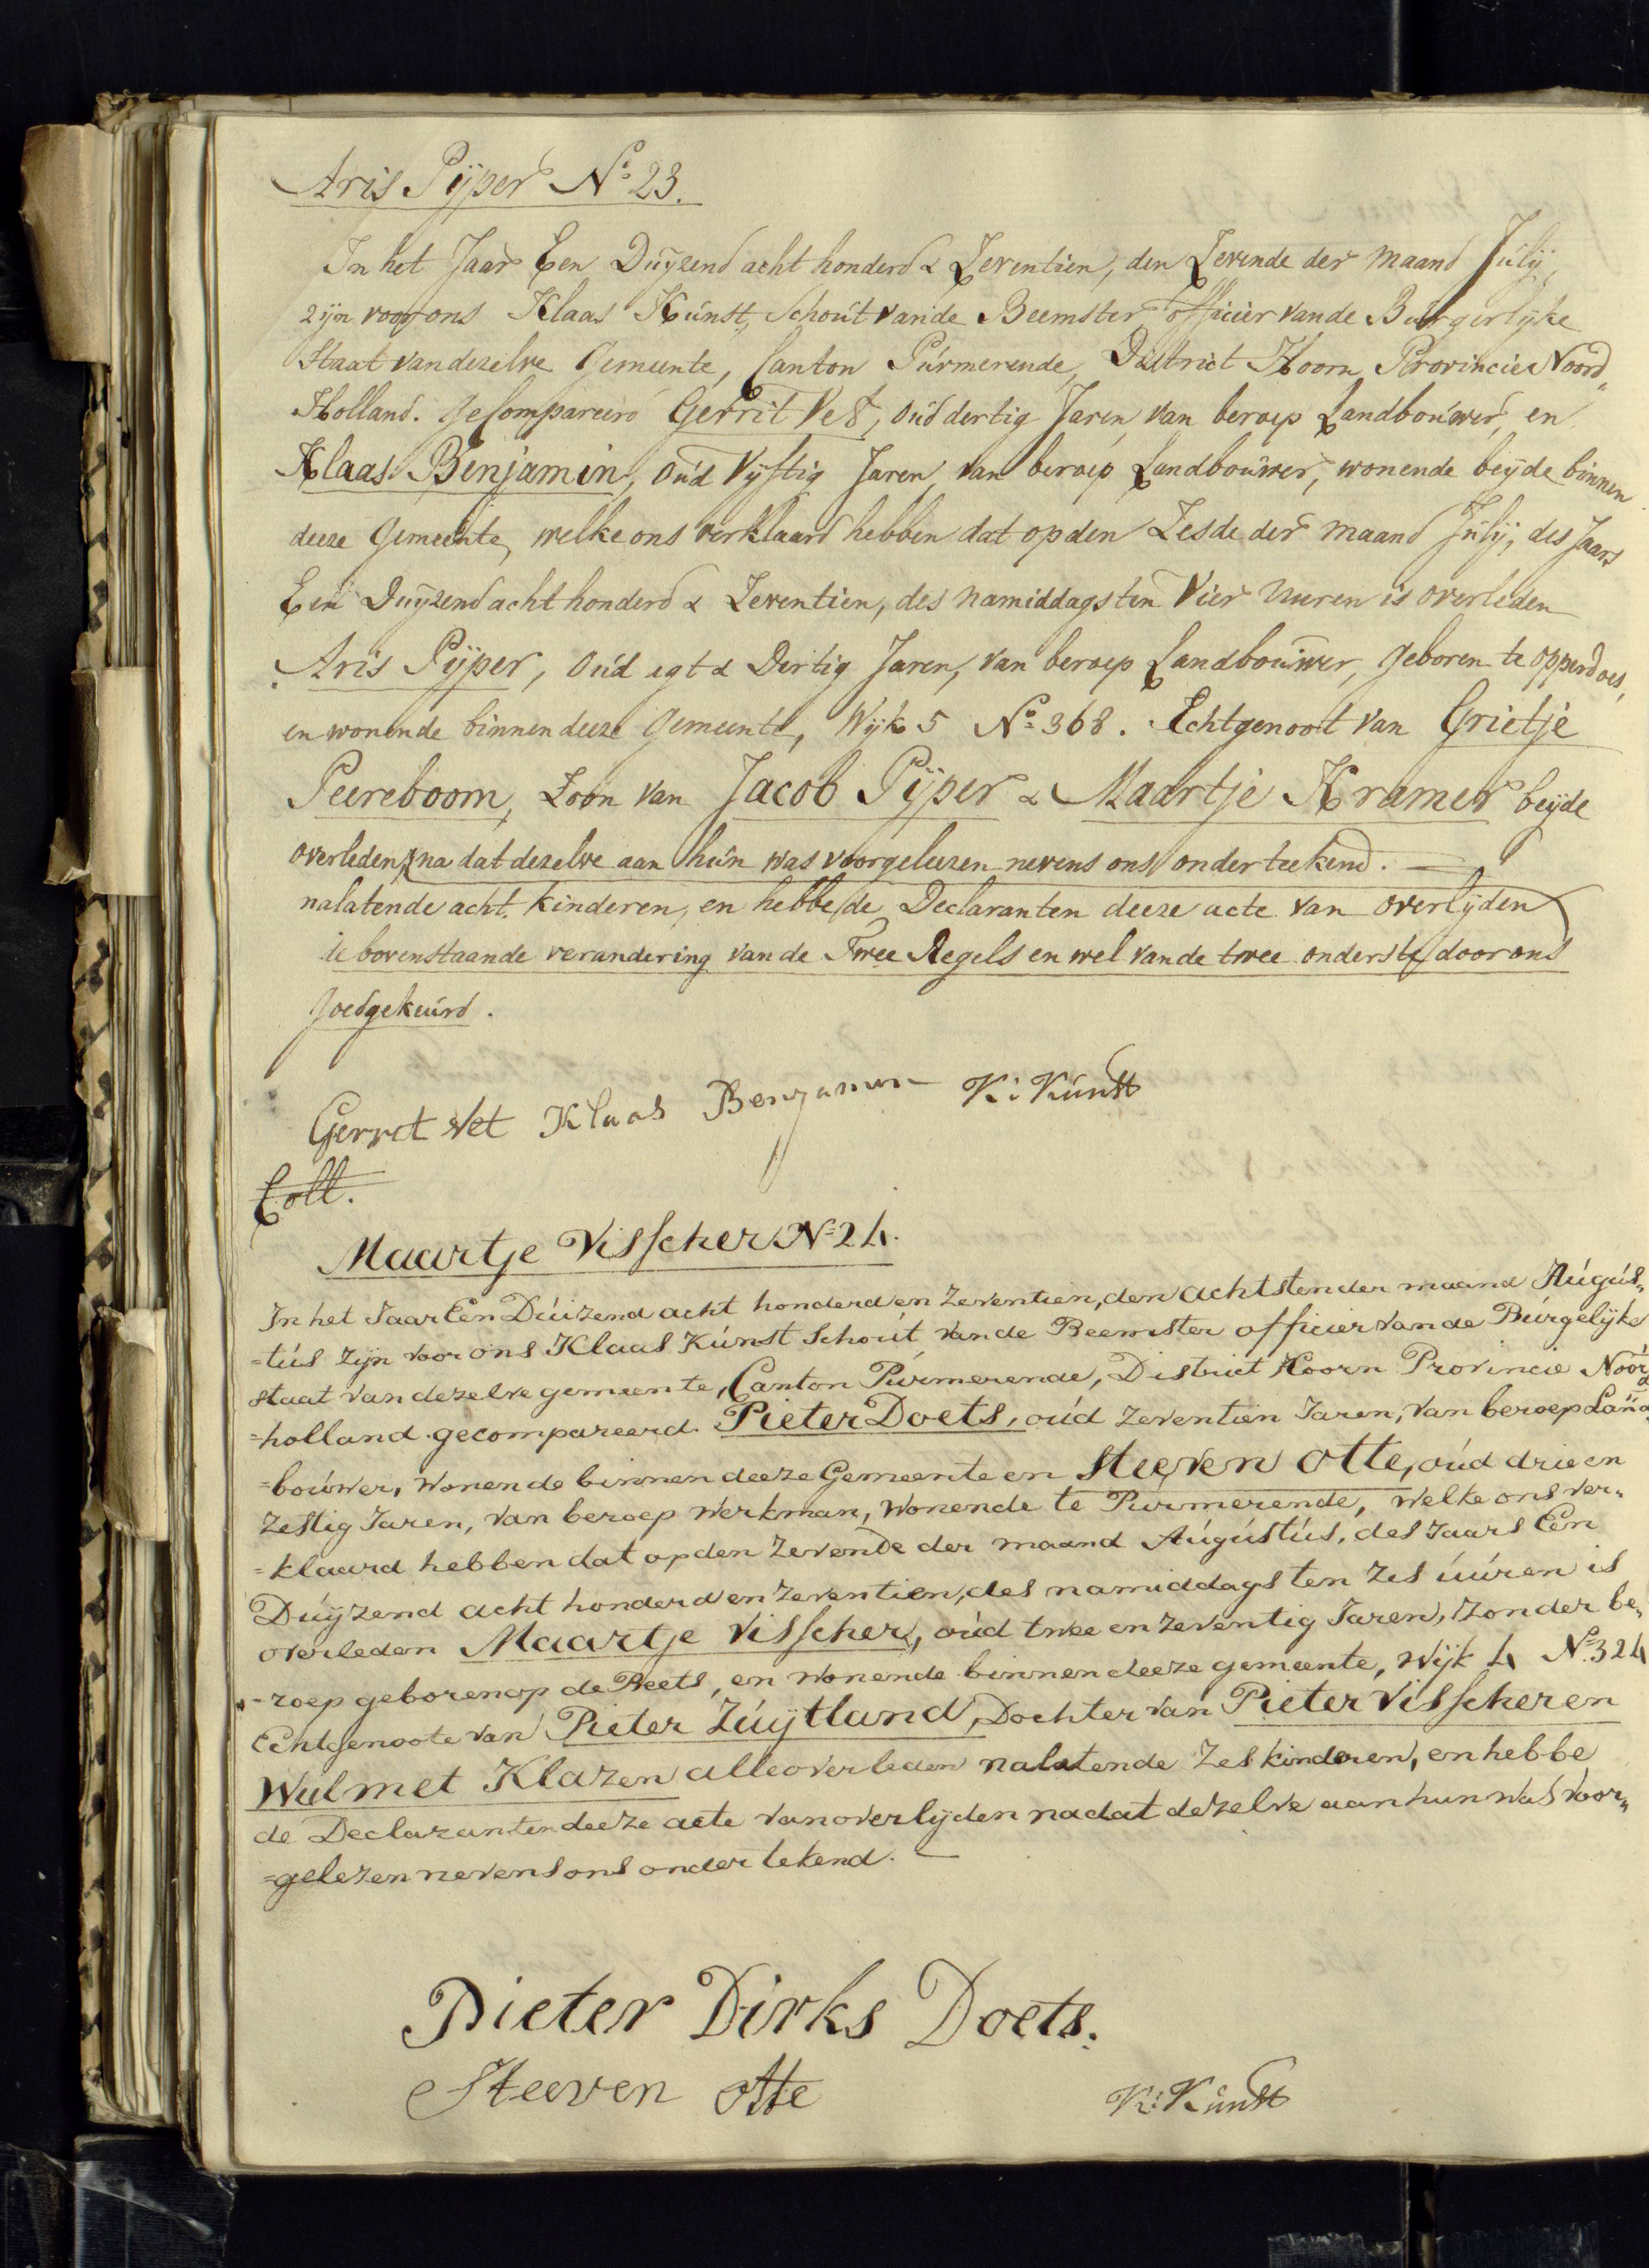 Aris Pÿper No. 23.
In het Jaar Een Duÿzend acht honderd & Zeventien, den Zevende der maand Julÿ,
zijn voor ons Klaas Kunst, Schout vande Beemster officier vande Burgerlÿke
Staat van dezelve Gemeente, Canton Purmerende, District Hoorn Provincie Noord„
Holland. Gecompareerd Gerrit Vet, oud dertig Jaren, van beroep Landbouwer, en
Klaas Benjamin, oud Vÿftig Jaren, van beroep Landbouwer, wonende beÿde binnen
deeze Gemeente, welke ons verklaard hebben dat op den Zesde der maand Julÿ, des Jaars
Een Duÿzend acht honderd & Zeventien, des namiddags ten Vier uuren is overleden
Aris Pÿper, oud agt & Dertig Jaren, van beroep Landbouwer, geboren te opperdoes,
en wonende binnen deeze Gemeente, Wÿk 5 No. 368. Echtgenoot van Grietje
Peereboom, Zoon van Jacob Pÿper & Maartje Kramer beÿde
overleden, na dat dezelve aan hun was voorgeleezen nevens ons onderteekend. —
nalatende acht kinderen, en hebbe de Declaranten deeze acte van overlÿden
de bovenstaande verandering van de Twee Regels en wel van de twee onderste door ons
goedgekeurd.
Gerret Vet Klaas Benjamin K: Kunst
Coll.
Maartje Visscher No. 24.
In het Jaar Een Duizend acht honderd en Zeventien, den achtsten der maand Augus„
=tus zijn voor ons Klaas Kunst Schout vande Beemster officier vande Burgelÿke
staat van dezelve gemeente, Canton Purmerende, District Hoorn Provincie Noord
=holland gecompareerd. Pieter Doets, oud Zeventien Jaren, van beroep Land
=bouwer, wonende binnen deeze Gemeente en Steeven Otte, oud drie en
Zestig Jaren, van beroep werkman, wonende te Purmerende, welke ons ver„
=klaard hebben dat op den Zevende der maand Augustus, des Jaars Een
Duÿzend acht honderd en Zeventien, des namiddags ten Zes uuren is
overleden Maartje Visscher, oud twee en Zeventig Jaren, Zonder be„
=roep geboren op de Beets, en wonende binnen deeze gemeente, Wÿk 4 No. 324
Echtgenoote van Pieter Zuÿtland, Dochter van Pieter Visscher en
Wulmet Klazen alle overleden nalatende Zes kinderen, en hebbe
de Declaranten deeze acte van overlÿden na dat dezelve aan hun was voor„
=gelezen nevens ons ondertekend. —
Pieter Dirks Doets.
Steeven Otte
K: Kunst